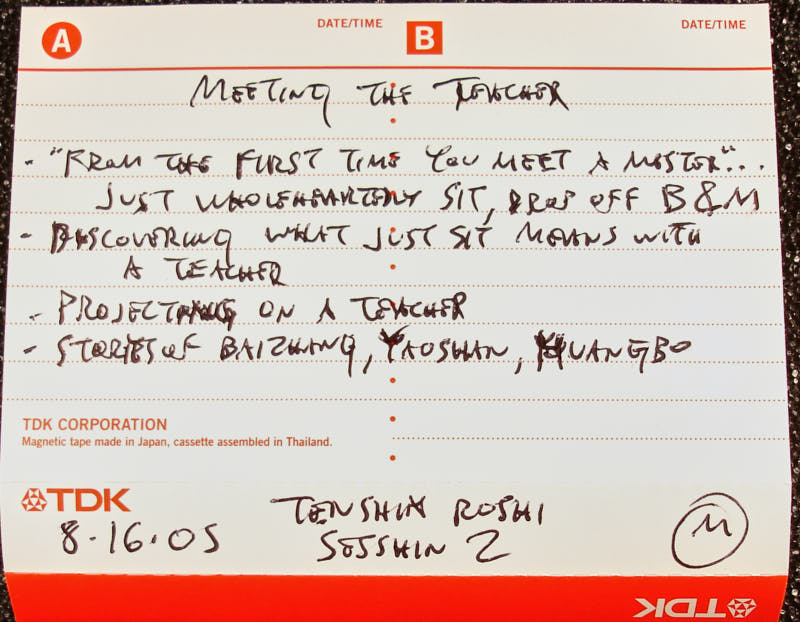 A DATE/TIME B DATE/TIME
MEETING THE TEACHER
- "FROM THE FIRST TIME YOU MEET A MASTER"...
JUST WHOLEHEARTEDLY SIT, DROP OFF B & M
- DISCOVERING WHAT JUST SIT MEANS WITH
A TEACHER
- PROJECTING ON A TEACHER
- STORIES OF BAIZHANG, YAOSHAN, HUANGBO
TDK CORPORATION
Magnetic tape made in Japan, cassette assembled in Thailand.
TDK
TENSHIN ROSHI
8·16·05
SESSHIN 2
M
TDK